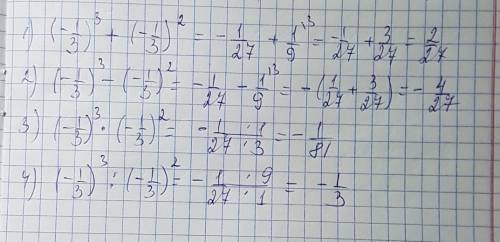 1) (-1/3)^3 + (-1/3)^2 = -1/27 + 1/9^{\3} = -1/27 + 3/27 = 2/27
2) (-1/3)^3 - (-1/3)^2 = -1/27 - 1/9^{\3} = -(1/27 + 3/27) = -4/27
3) (-1/3)^3 · (-1/3)^2 = -(1 · 1)/(27 · 3) = -1/81
4) (-1/3)^3 : (-1/3)^2 = -(1 · 9)/(27 · 1) = -1/3